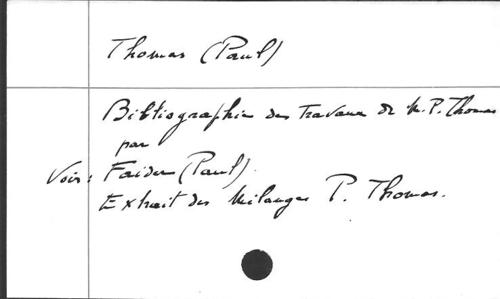 Thomas (Paul)
Bibliographie des travaux de M. P. Thomas
par
Voir: Faider (Paul).
Extrait des Mélanges P. Thomas.